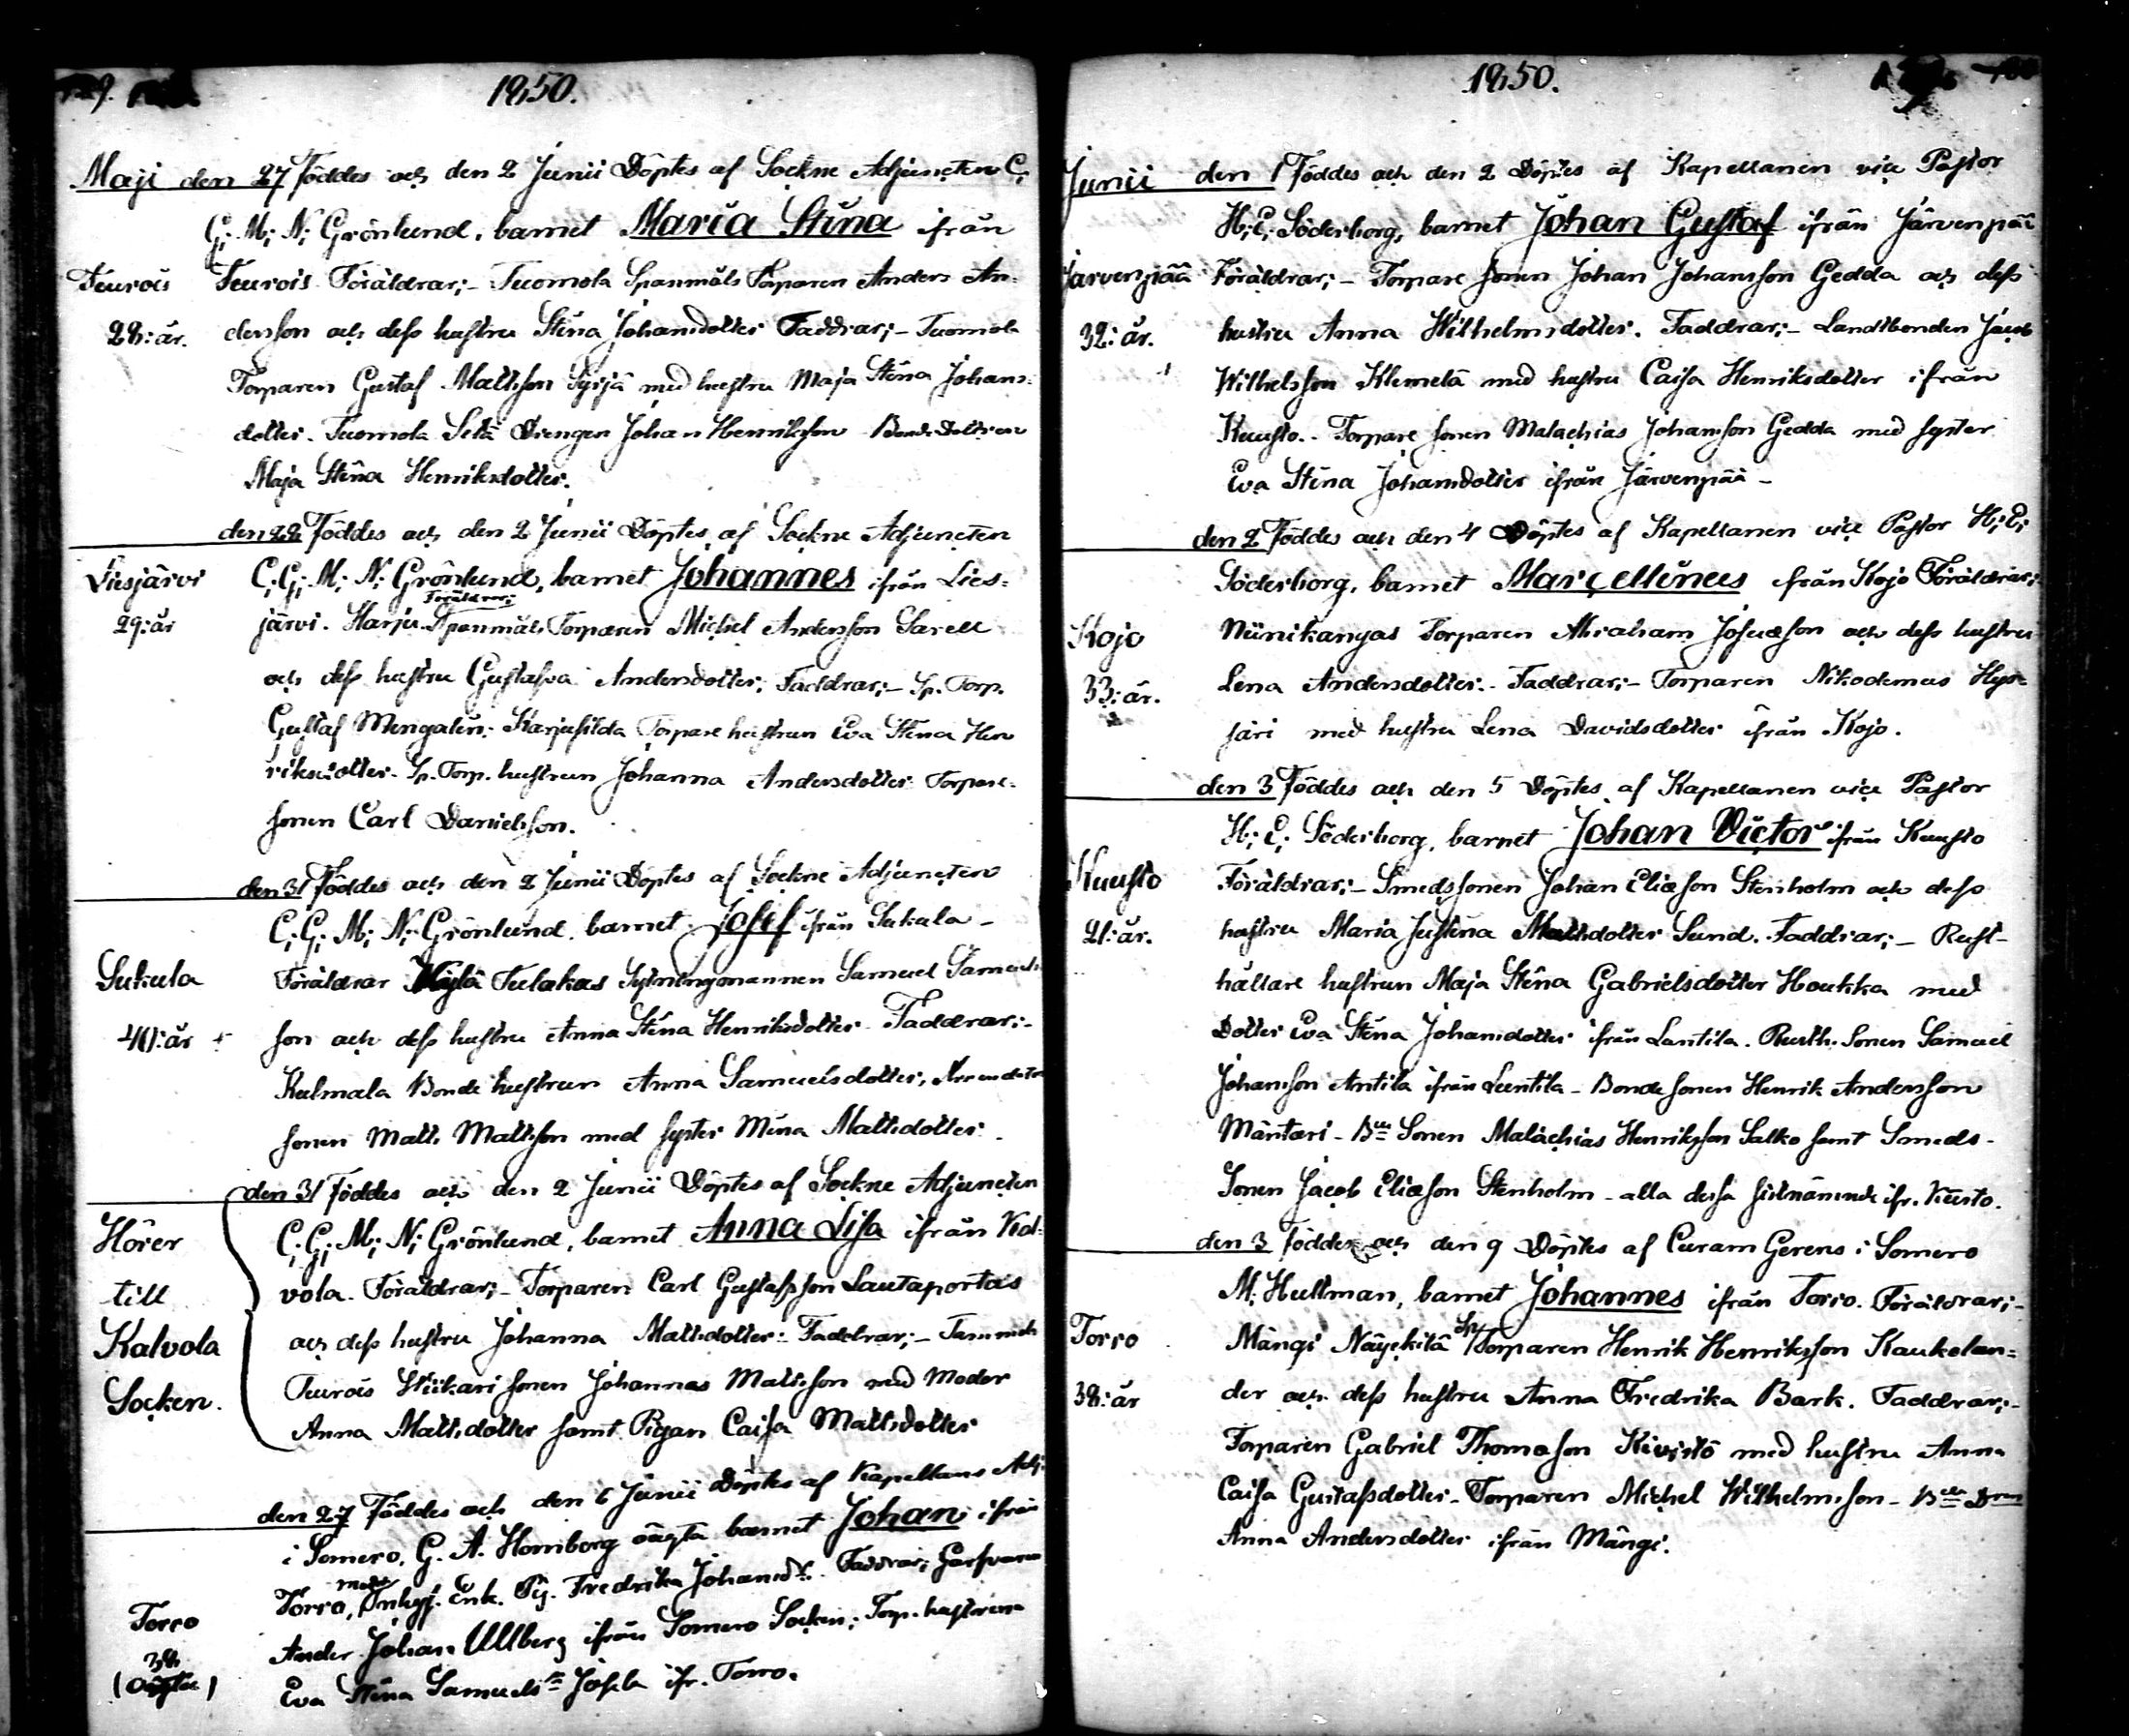 1850.
Maji den 27 Föddes och den 2 Junii Döptes af Sockne Adjuncten C;
G; M; N; Grönlund, barnet Maria Stina ifrån
Teurois Teurois Föräldrar;- Tuomola Spanmåls Torparen Anders An-
28: år. dersson och dess hustru Stina Johansdotter Faddrar;- Tuomola
Torparen Gustaf Mattsson Syrjä med hustru Maja Stina Johans-
dotter. Tuomola Drengen Johan Henriksson Bonde Dottren
Maja Stina Henriksdotter.
den 28 Föddes och den 2 Junii Döptes af Sockne Adjuncten
Liesjärvi C; G; M; N; Grönlund, barnet Johannes ifrån Lies-
Föräldrar;
29: år järvi. Harju Spanmåls Torparen Michel Andersson Sarell
och dess hustru Gustafva Andersdotter; Faddrar;- Sp. Torp.
Gustaf Mengalin; Torpare hustrun Eva Stina Hen
riksdotter. Sp. Torp. hustrun Johanna Andersdotter Torpare-
sonen Carl Danielsson.
den 31 Föddes och den 2 Junii Döptes af Sockne Adjuncten
C; G; M; N; Grönlund, barnet Josef ifrån Sukula -
Sukula Föräldrar Sytningsmannen Samuel Samuels
40: år son och dess hustru Anna Stina Henriksdotter Faddrar;-
Kulmala Bonde hustrun Anna Samuelsdotter,
sonen Matts Mattsson med syster Mina Mattsdotter.
den 31 Föddes och den 2 Junii Döptes af Sockne Adjuncten
Hörer C; G; M; N; Grönlund, barnet Anna Lisa ifrån Kal-
till vola. Föräldrar;- Torparen Carl Gustafsson Lautaportas
Kalvola och dess hustru Johanna Mattsdotter: Faddrar;- Tammela
Socken. Teurois Wiikari sonen Johannes Mattsson med Moder
Anna Mattsdotter samt Pigan Caisa Mattsdotter
den 27 Föddes och den 6 Junii Döptes af Kapellans Adj.
i Somero, G. A. Horriborg oägta barnet Johan ifrån
Moder
Torro Torro, Inhys. Enk. Pig. Fredrika Johansdr. Faddrar;
38 Ander Johan Ullberg ifrån Somero Socken; Torp. hustrun
(Oägta) Eva Stina Samuels ifr. Torro.
1850.
Junii den 1 Föddes och den 2 Döptes af Kapellanen vice Pastor
H; E; Söderborg, barnet Johan Gustaf ifrån Järvenpää
Järvenpää Föräldrar;- Torpare sonen Johan Johansson Gedda och dess
32: år. hustru Anna Wilhelmsdotter. Faddrar;- Landtbonden Jacob
Wilhelsson Klemelä med hustru Caisa Henriksdotter ifrån
Kuusto.. Torpare sonen Malachias Johansson Gedda med syster
Eva Stina Johansdotter ifrån Järvenpää -
den 2 Föddes och den 4 Döptes af Kapellanen vice Pastor H; E;
Söderborg, barnet Marcellinus ifrån Kojo Föräldrar;
Kojo Niinikangas Torparen Abraham Josuason och dess hustru
33: år. Lena Andersdotter.. Faddrar;- Torparen Nikodemus Hyr-
järi med hustru Lena Davidsdotter ifrån Kojo.
den 3 Föddes och den 5 Döptes af Kapellanen vice Pastor
H; E; Söderborg, barnet Johan Victor ifrån Kuusto
Kuusto Föräldrar;- Smedssonen Johan Eliason Stenholm och dess
21: år. hustru Maria Justina Mattsdotter Sund. Faddrar;- Rust-
hållare hustrun Maja Stina Gabrielsdotter Houkka med
Dotter Eva Stina Johansdotter ifrån Lantila. Rusth. Sonen Samuel
Johansson Antila ifrån Luntila - Bonde sonen Henrik Andersson
Mäntäri - Bde Sonen Malachias Henriksson Salko samt Smeds-
Sonen Jacob Eliason Stenholm - alla dessa sistnämnde ifr. Kuusto.
den 3 Föddes och den 9 Döptes af Curam Gerens i Somero
M. Hultman, barnet Johannes ifrån Torro. Föräldrar;-
Sp.
Torro Mängi Näyckitä Torparen Henrik Henriksson Kaukolan-
38: år der och dess hustru Anna Fredrika Bark. Faddrar;-
Torparen Gabriel Thomason Kivistö med hustru Anna
Caisa Gustafsdotter - Torparen Michel Wilhelmsson - Bde Dren
Anna Andersdotter ifrån Mängi.